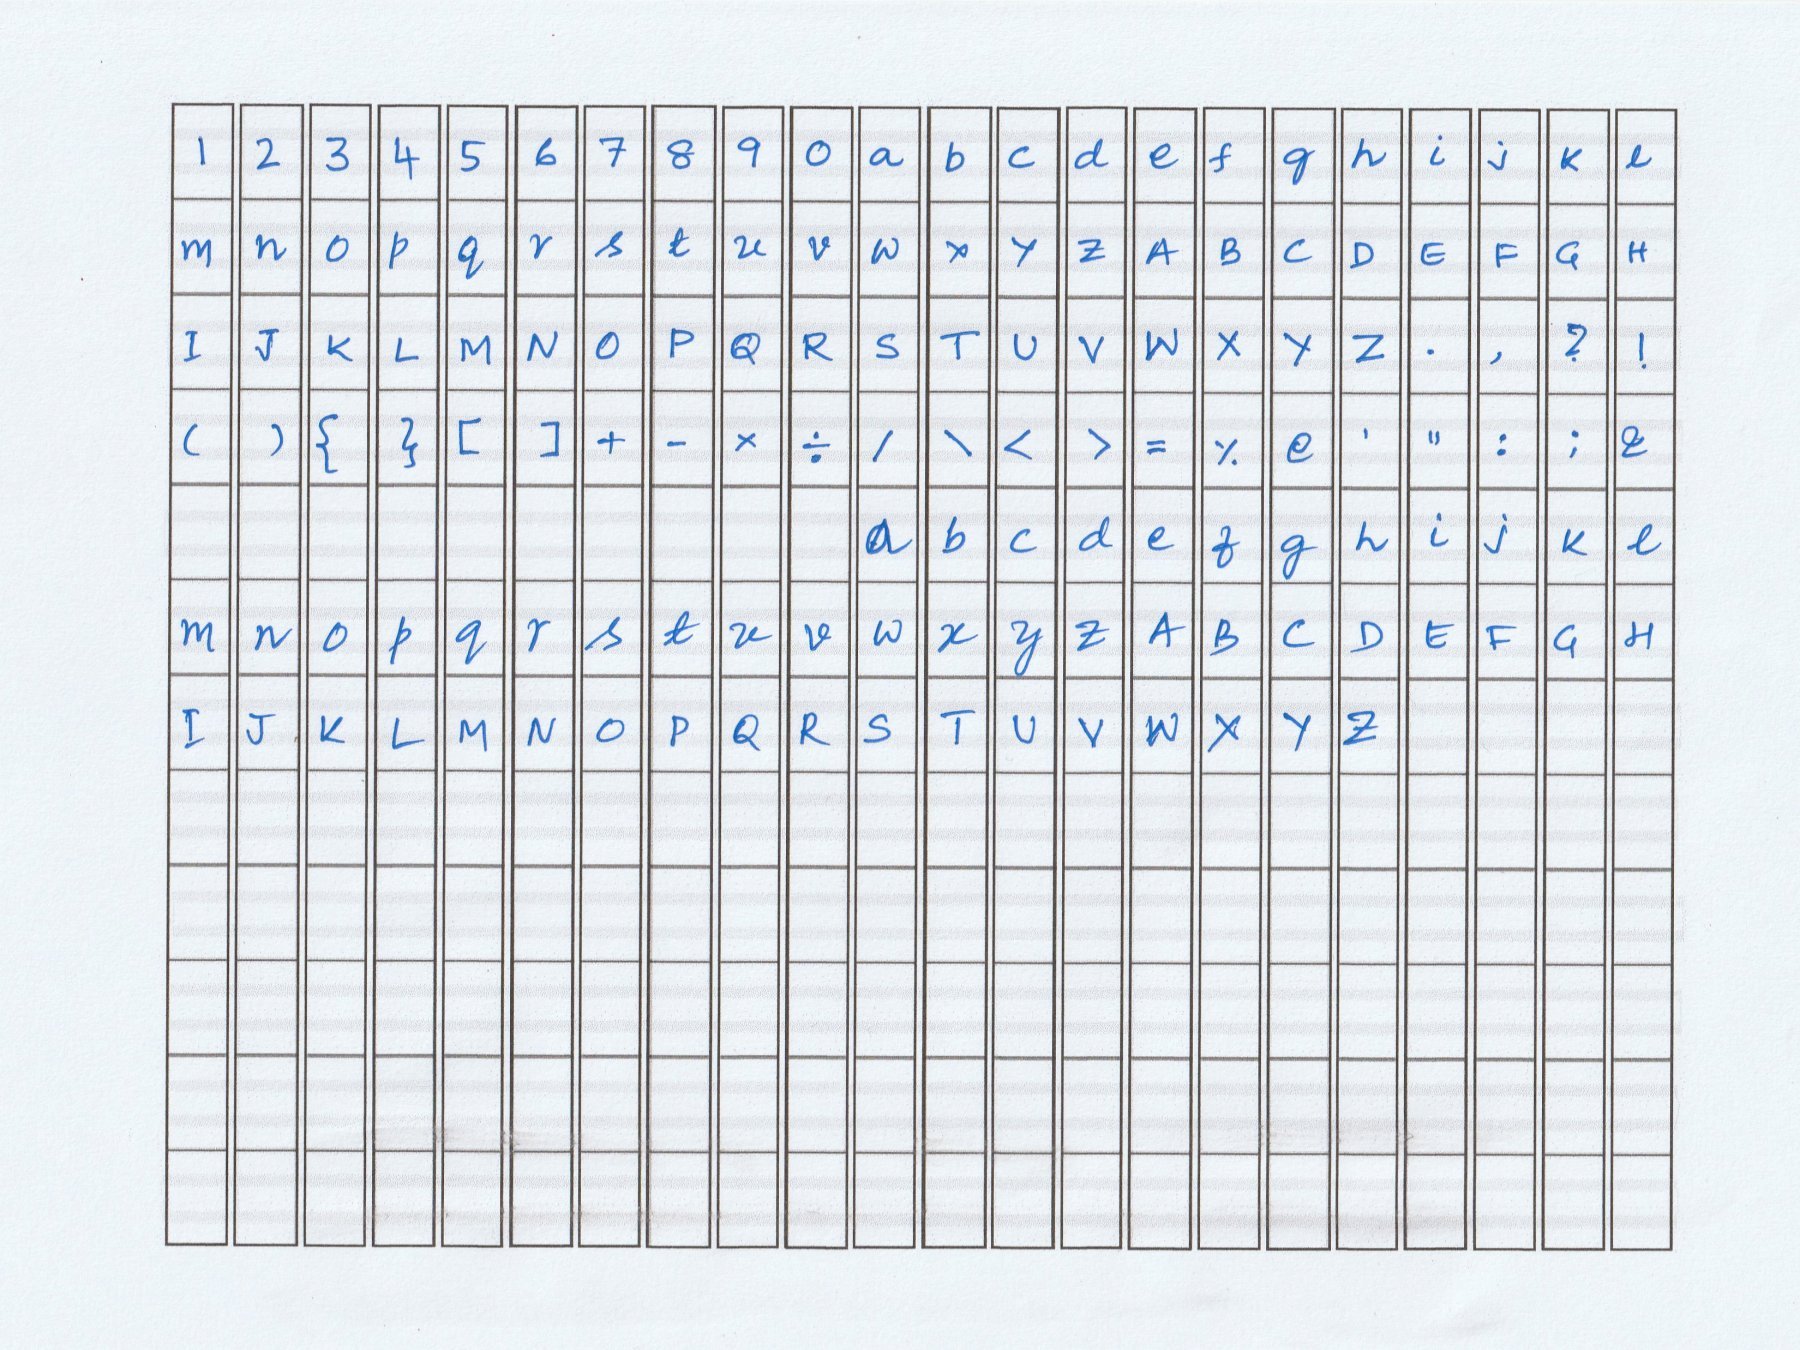 1 2 3 4 5 6 7 8 9 0 a b c d e f g h i j k l
m n o p q r s t u v w x y z A B C D E F G H
I J K L M N O P Q R S T U V W X Y Z . , ? !
( ) { } [ ] + - × ÷ / \ < > = % @ ' " : ; &
a b c d e f g h i j k l
m n o p q r s t u v w x y z A B C D E F G H
I J K L M N O P Q R S T U V W X Y Z